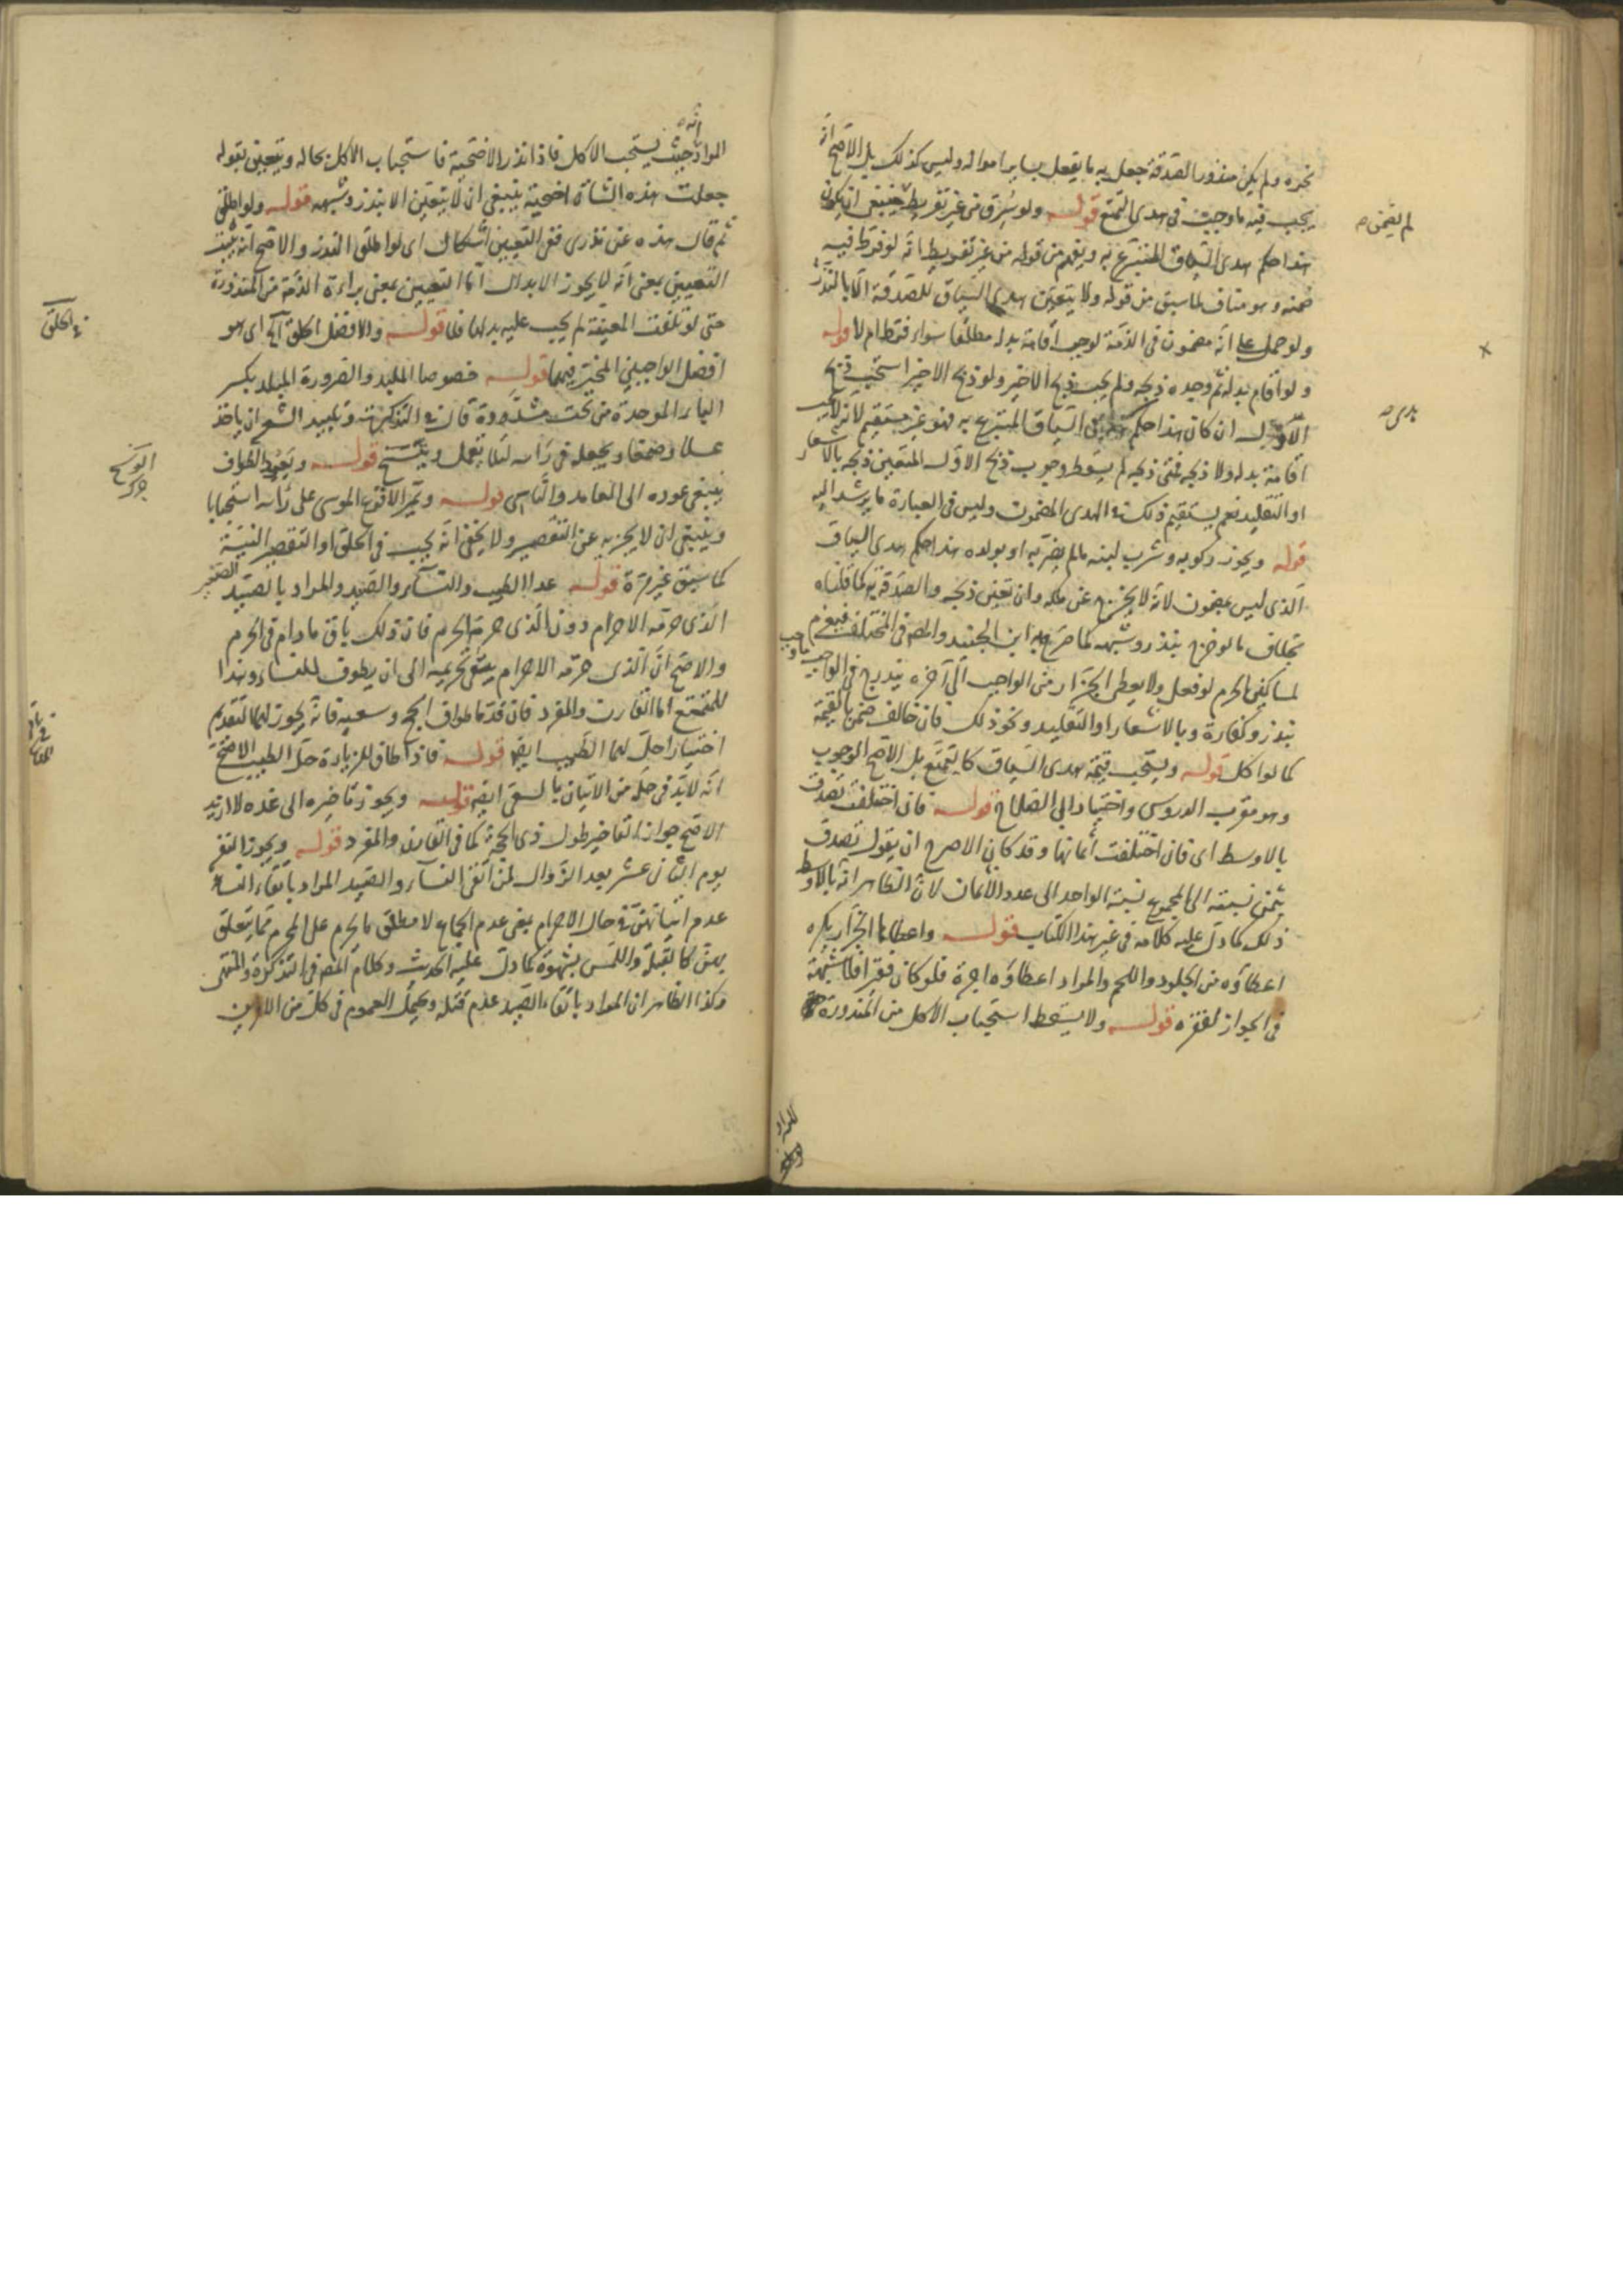 نحره ولم يكن منذورا لصدقة جعل به ما يفعل بساير امواله وليس كذلك بل الاصح انه
يجب فيه ما وجب في هدى التمتع قوله ولو سرق من غير تفريط لم يضمن ينبغى ان يكون
هذا حكم هدى السياق المتبرع به ويفهم من قوله من غير تفريط انه لو فرط فيه
ضمنه وهو مناف لما سبق من قوله ولا يتعين هدى السياق للصدقة الا بالنذر
ولو حمل على انه مضمون في الذمة لوجب اقامة بدله مطلقا سواء فرط ام لا قوله
ولو اقام بدله ثم وجده ذبحه ولم يجب ذبح الاخير ولو ذبح الاخير استحب ذبح
الاول ان كان هذا حكم هدى السياق المتبرع به فهو غير مستقيم لانه لا يجب
اقامة بدله ولا ذبحه فمتى ذبحه لم يسقط وجوب ذبح الاول المتعين ذبحه بالاشعار
او التقليد نعم يستقيم ذلك في الهدى المضمون وليس في العبارة ما يرشد اليه
قوله ويجوز ركوبه وشرب لبنه ما لم يضر به او بولده هذا حكم هدى السياق
الذى ليس بمضمون لانه لا يخرج عن ملكه وان تعين ذبحه والصدقة به كما قلناه
بخلاف ما لو خرج بنذر وشبهه كما صرح به ابن الجنيد والمص في المختلف فيغرم
لمساكين الحرم لو فعل ولا يعطى الجزار من الواجب الى آخره يندرج في الواجب ما وجب
بنذر وكفارة وبالاشعار او التقليد ونحو ذلك فان خالف ضمن بالقيمة
كما لو اكل قوله ويستحب قسمة هدى السياق كالتمتع بل الاصح الوجوب
وهو مقرب الدروس واختيار ابى الصلاح قوله فان اختلفت تصدق
بالاوسط اى فان اختلفت أثمانها وقد كان الاصرح ان يقول تصدق
بثمن نسبته الى المجموع نسبة الواحد الى عدد الأثمان لان الظاهر انه بالاوسط
ذلك كما دل عليه كلامه في غير هذا الكتاب قوله واعطاء الجزار يكره
اعطاؤه من الجلود واللحم والمراد اعطاؤه اجرة فلو كان فقيرا فلا شبهة
في الجواز لفقره قوله ولا يسقط استحباب الاكل من المنذورة
المراد انه حيث يستحب الاكل فاذا نذر الاضحية فاستحباب الاكل بحاله ويتعين بقوله
جعلت هذه الشاة اضحية ينبغى ان لا يتعين الا بنذر وشبهه قوله ولو اطلق
ثم قال هذه عن نذرى ففي التعيين اشكال اى لو اطلق النذر والاصح انه يثبت
التعيين بمعنى انه لا يجوز الابدال أما التعيين بمعنى براءة الذمة من المنذورة
حتى لو تلفت المعينة لم يجب عليه بدلها فلا قوله والافضل الحلق آه اى هو
افضل الواجبين المخير فيهما قوله خصوصا الملبد والصرورة الملبد بكسر
الباء الموحدة من تحت مشدودة قال في التذكرة وتلبيد الشعر ان ياخذ
عسلا وصمغا ويجعله في راسه لئلا يقمل ويتسخ قوله ويعيد الطواف
ينبغى عوده الى العامد والناسى قوله ويمر الاقرع الموسى على رأسه استحبابا
وينبغى ان لا يجزيه عن التقصير ولا يخفى انه يجب في الحلق او التقصير النية
كما سبق غير مرة قوله عدا الطيب والنساء والصيد والمراد بالصيد الصيد
الذى حرمه الاحرام دون الذى حرمه الحرم فان ذلك باق مادام في الحرم
والاصح ان الذى حرمه الاحرام يبقى تحريمه الى ان يطوف للنساء وهذا
للمتمتع اما القارن والمفرد فان قدما طواف الحج وسعيه فانه يجوز لهما التقديم
اختيارا حل لهما الطيب ايضا قوله فاذا طاف للزيارة حل الطيب الاصح
انه لابد في حله من الاتيان بالسعى ايضا قوله ويجوز تاخيره الى غده لا ازيد
الاصح جواز التاخير طول ذى الحجة كما في القارن والمفرد قوله ويجوز النفر
يوم الثانى عشر بعد الزوال لمن اتقى النساء والصيد المراد باتقاء النساء
عدم اتيانهن في حال الاحرام يعنى عدم الجماع لا مطلق ما يحرم على المحرم مما يتعلق
بهن كالقبلة واللمس بشهوة كما دل عليه الحديث وكلام المص في التذكرة والمنتهى
وكذا الظاهر ان المراد باتقاء الصيد عدم قتله ويحتمل العموم في كل من الامرين
لم يضمن
الحلق
الوسخ